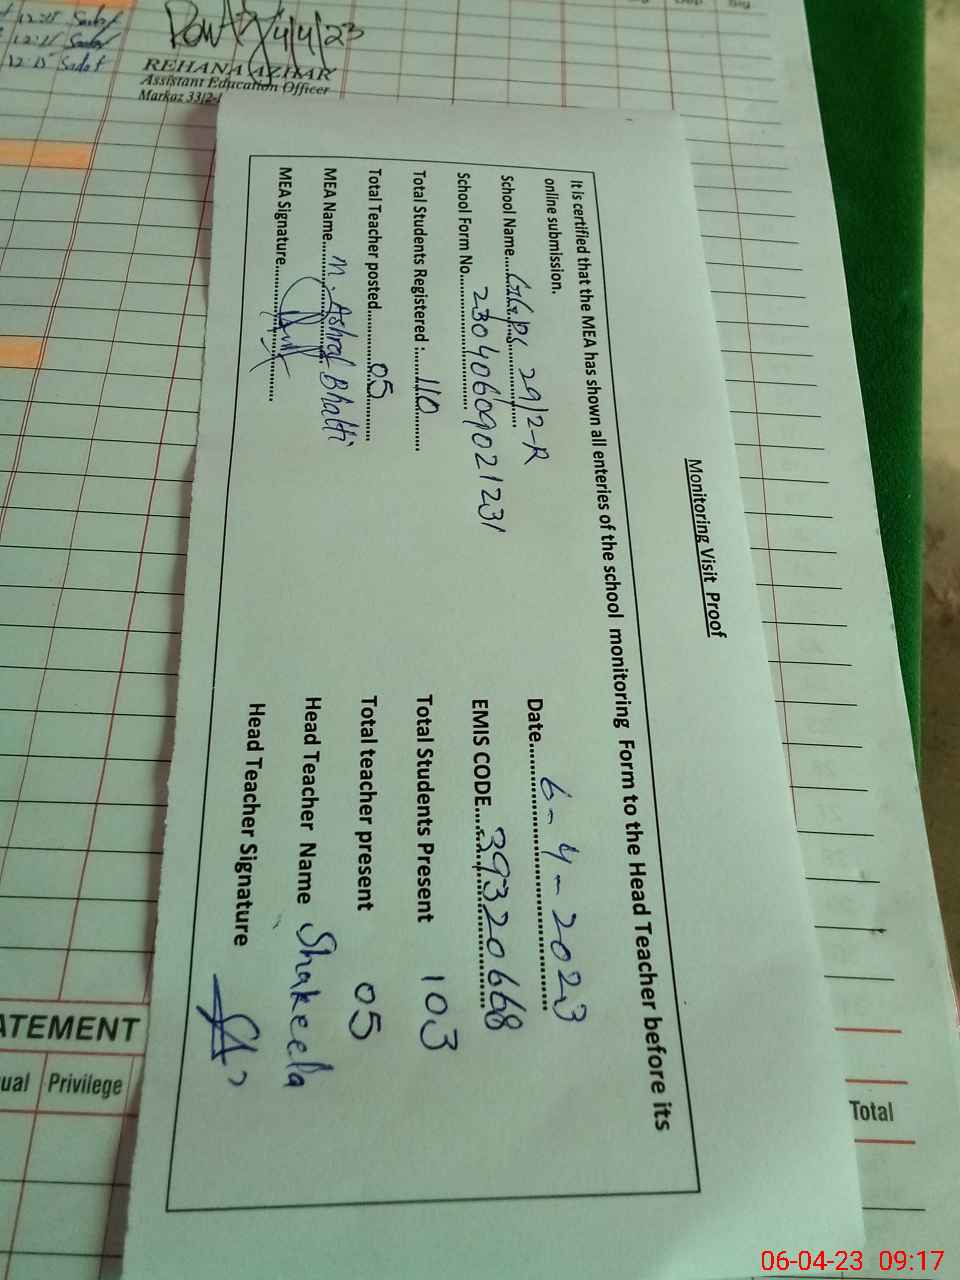 12:15 Sadaf
12:15 Sadaf
12:15 Sadaf
4/4/23
REHANA AZHAR
Assistant Education Officer
Markaz 33/2-
Monitoring Visit Proof
It is certified that the MEA has shown all enteries of the school monitoring Form to the Head Teacher before its
online submission.
School Name....GGPS 29/2-R Date....6-4-2023
School Form No....23040609021231 EMIS CODE....39320668
Total Students Registered :....110 Total Students Present 103
Total Teacher posted....05 Total teacher present 05
MEA Name....M. Ashraf Bhatti Head Teacher Name Shakeela
MEA Signature.... Head Teacher Signature
ATEMENT
ual Privilege
Total
06-04-23 09:17